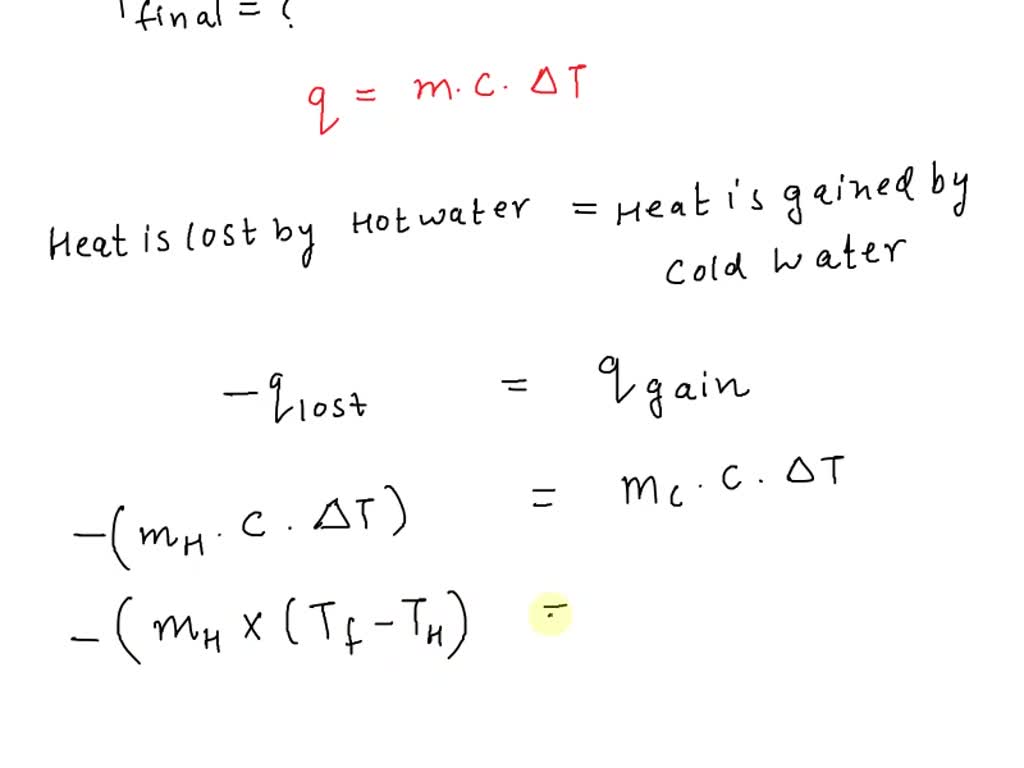 T final = ?
q = m. c. ΔT
Heat is lost by Hot water = Heat is gained by
cold water
-q lost = q gain
-(m_H . c . ΔT) = m_c . c . ΔT
-(m_H x (T_f - T_H) =